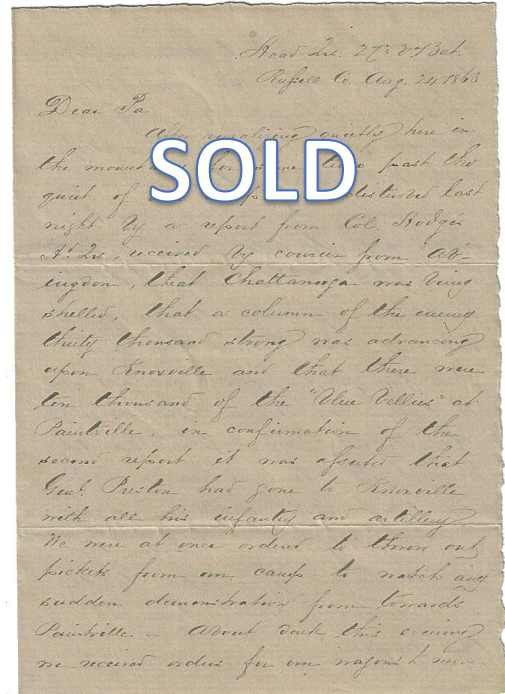 Head Qrs 27th Va Bat.
Russell Co. Aug. 24 1863
Dear Pa
After remaining quietly here in
the mountains for some time past the
quiet of disturbed last
SOLD
night by a report from Col. Hodges
Hd. Qrs, received by courier from Ab-
ingdon, that Chattanooga was being
shelled, that a column of the enemy
thirty thousand strong was advancing
upon Knoxville and that there were
ten thousand of the "blue bellies" at
Paintville, in confirmation of the
second report it was asserted that
Genl. Preston had gone to Knoxville
with all his infantry and artillery.
We were at once ordered to throw out
pickets from our camp to watch any
sudden demonstration from towards
Paintville – About dark this evening
we received orders for our wagons to